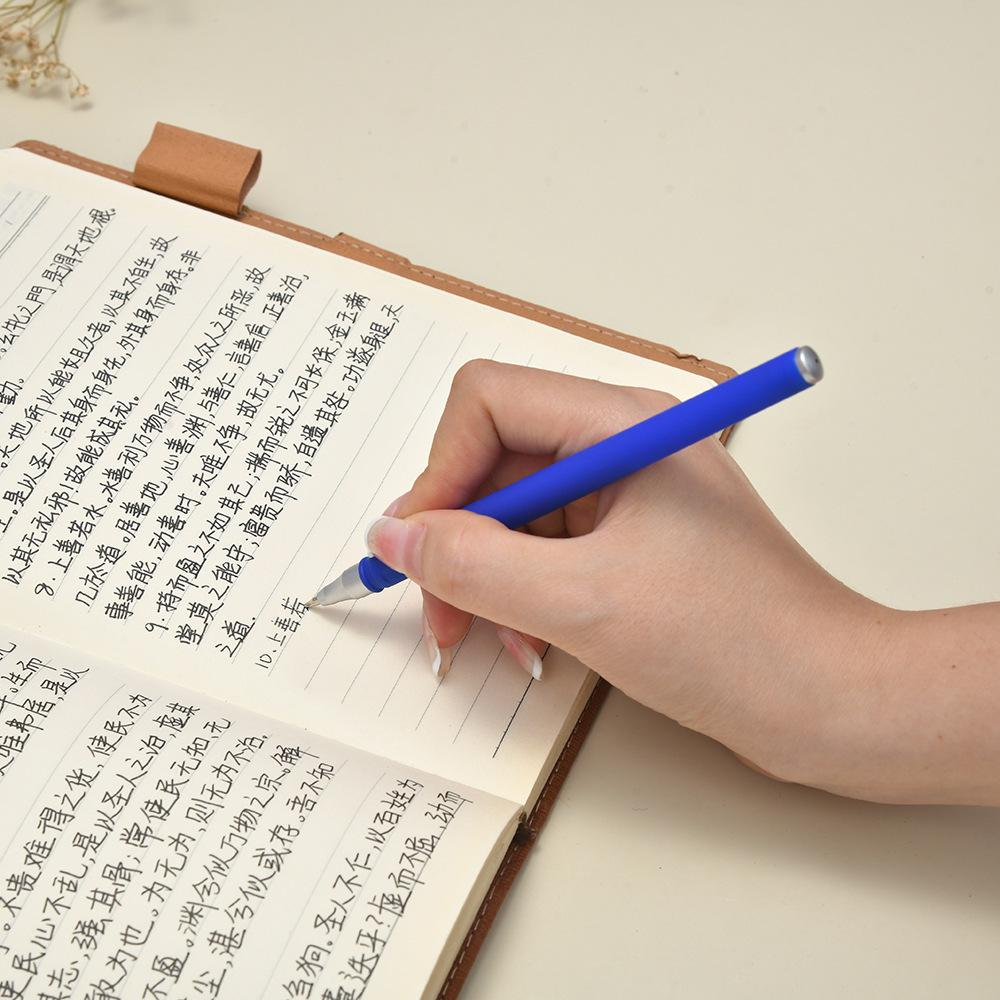 。生而
唯弗居,是以
。不贵难得之货,使民不为
使民心不乱,是以圣人之治 虚其
其志,强其骨;常使民无知,无
敢为也。为无为,则无内不治。
不盈。渊兮似万物之宗。解
尘,湛兮似或存。者不知
刍狗。圣人不仁,以百姓为
乎?虚而不屈,动而
牝之門 是谓天地根。
勤。
。天地所以能长且久者,以其不自生,故
生。是以圣人后其身而身先,外其身而身存。非
以其无私邪!故能成其私。
8. 上善若水。水善利万物而不争,处众人之所恶,故
几於道。居善地,心善渊,与善仁,言善信,正善治,
事善能,动善时。夫唯不争,故无尤。
9. 持而盈之不如其已;揣而锐之不可长保,金玉满
堂莫之能守;富贵而骄,自遗其咎。功遂身退,天
之道。
10. 上善若